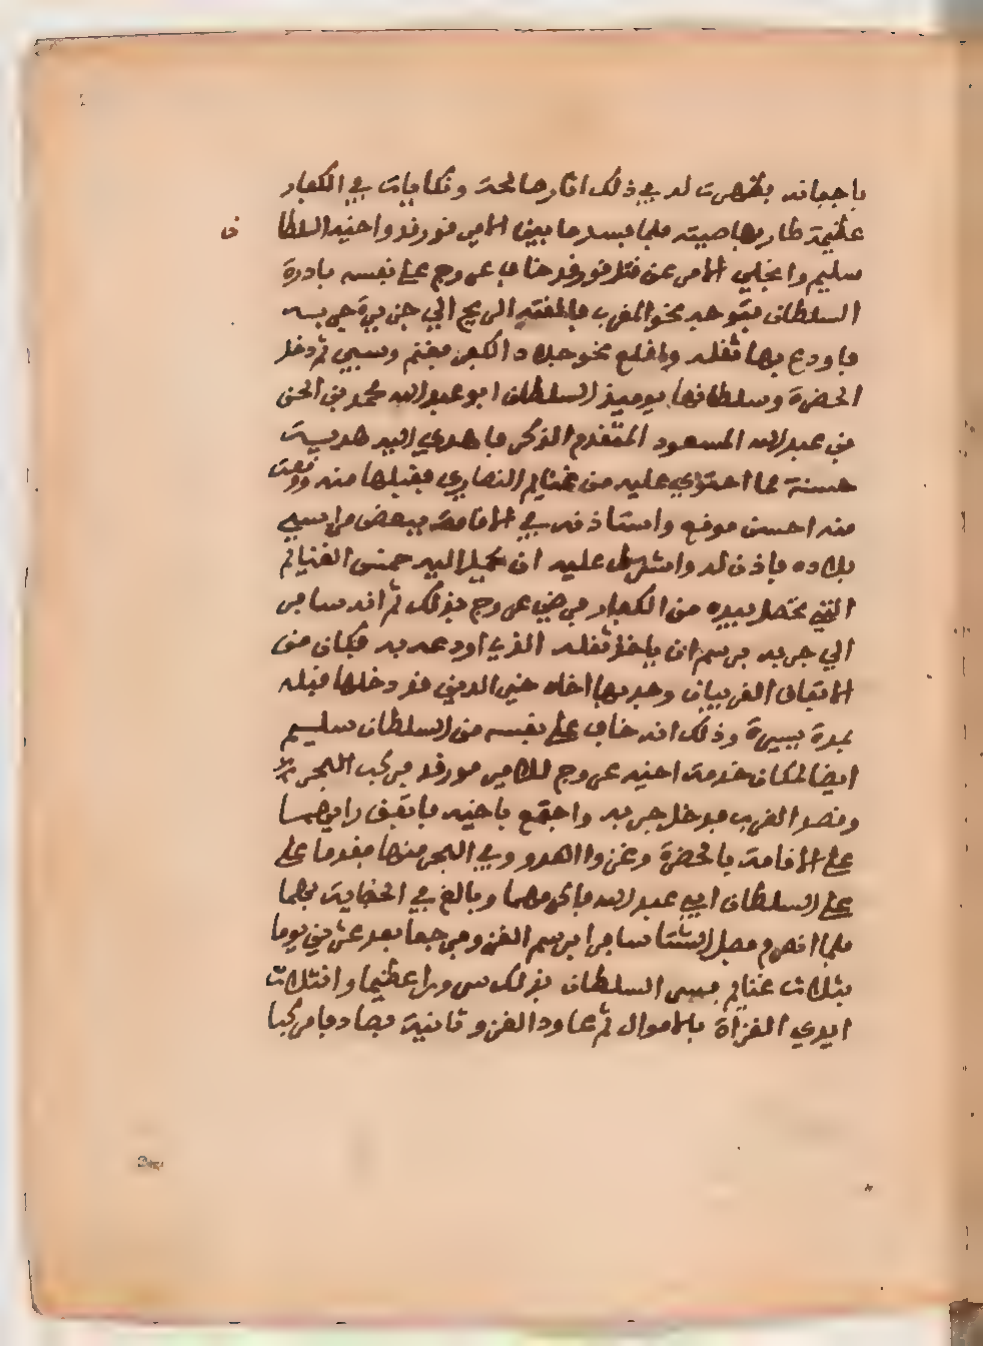 باجفانه بظهرت له في ذلك اثار صالحة ونكايات في الكفار
عظيمة طار بها صيته فلما فسد ما بين الامير قورقد واخيه السلطا ن
سليم وانجلى الامر عن قتل قورقد خاف عروج على نفسه بادرة
السلطان فتوجه نحو المغرب فالفته الريح الى جزيرة جربه
فاودع بها ثقله واقلع نحو بلاد الكفر فغنم وسبي ثم دخل
الحضرة وسلطانها يوميذ السلطان ابو عبد الله محمد بن الحسن
بن عبد الله المسعود المتقدم الذكر فاهدى اليه هدية
حسنة مما احتوى عليه من غنايم النصارى فقبلها منه ووقعت
منه احسن موقع واستاذنه في الاقامة ببعض مراسي
بلاده فاذن له واشترط عليه ان يحمل اليه خمس الغنايم
التي تحصل بيده من الكفار فرضي عروج بذلك ثم انه سافر
الى جربه برسم ان ياخذ ثقله الذي اودعه به فكان من
الاتفاق الغريب ان وجد بها اخاه خير الدين قد دخلها قبله
بمدة يسيرة وذلك انه خاف على نفسه من السلطان سليم
ايضا لمكان خدمة اخيه عروج للامير قورقد فركب البحر
وقصد الغرب فدخل جربه واجتمع باخيه فاتفق رايهما
على الاقامة بالحضرة وغزوا العدو في البحر منها فقدما على
على السلطان ابي عبد الله فاكرمهما وبالغ في الحفاية بهما
فلما انصرم فصل الشتا سافرا برسم الغزو فرجعا بعد عشرين يوما
بثلاث غنايم فسر السلطان بذلك سرورا عظيما وامتلات
ايدي الغزاة بالاموال ثم عاودا الغزو ثانية فصادفا مركبا